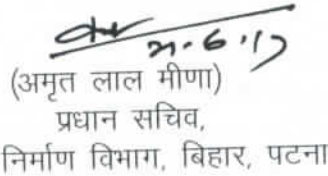 21.6.17
(अमृत लाल मीणा)
प्रधान सचिव,
निर्माण विभाग, बिहार, पटना